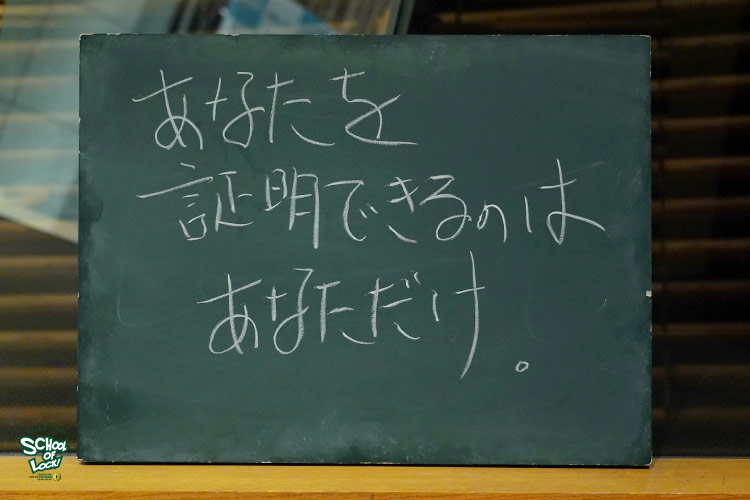 あなたを
証明できるのは
あなただけ。
SCHOOL
OF
LOCK!